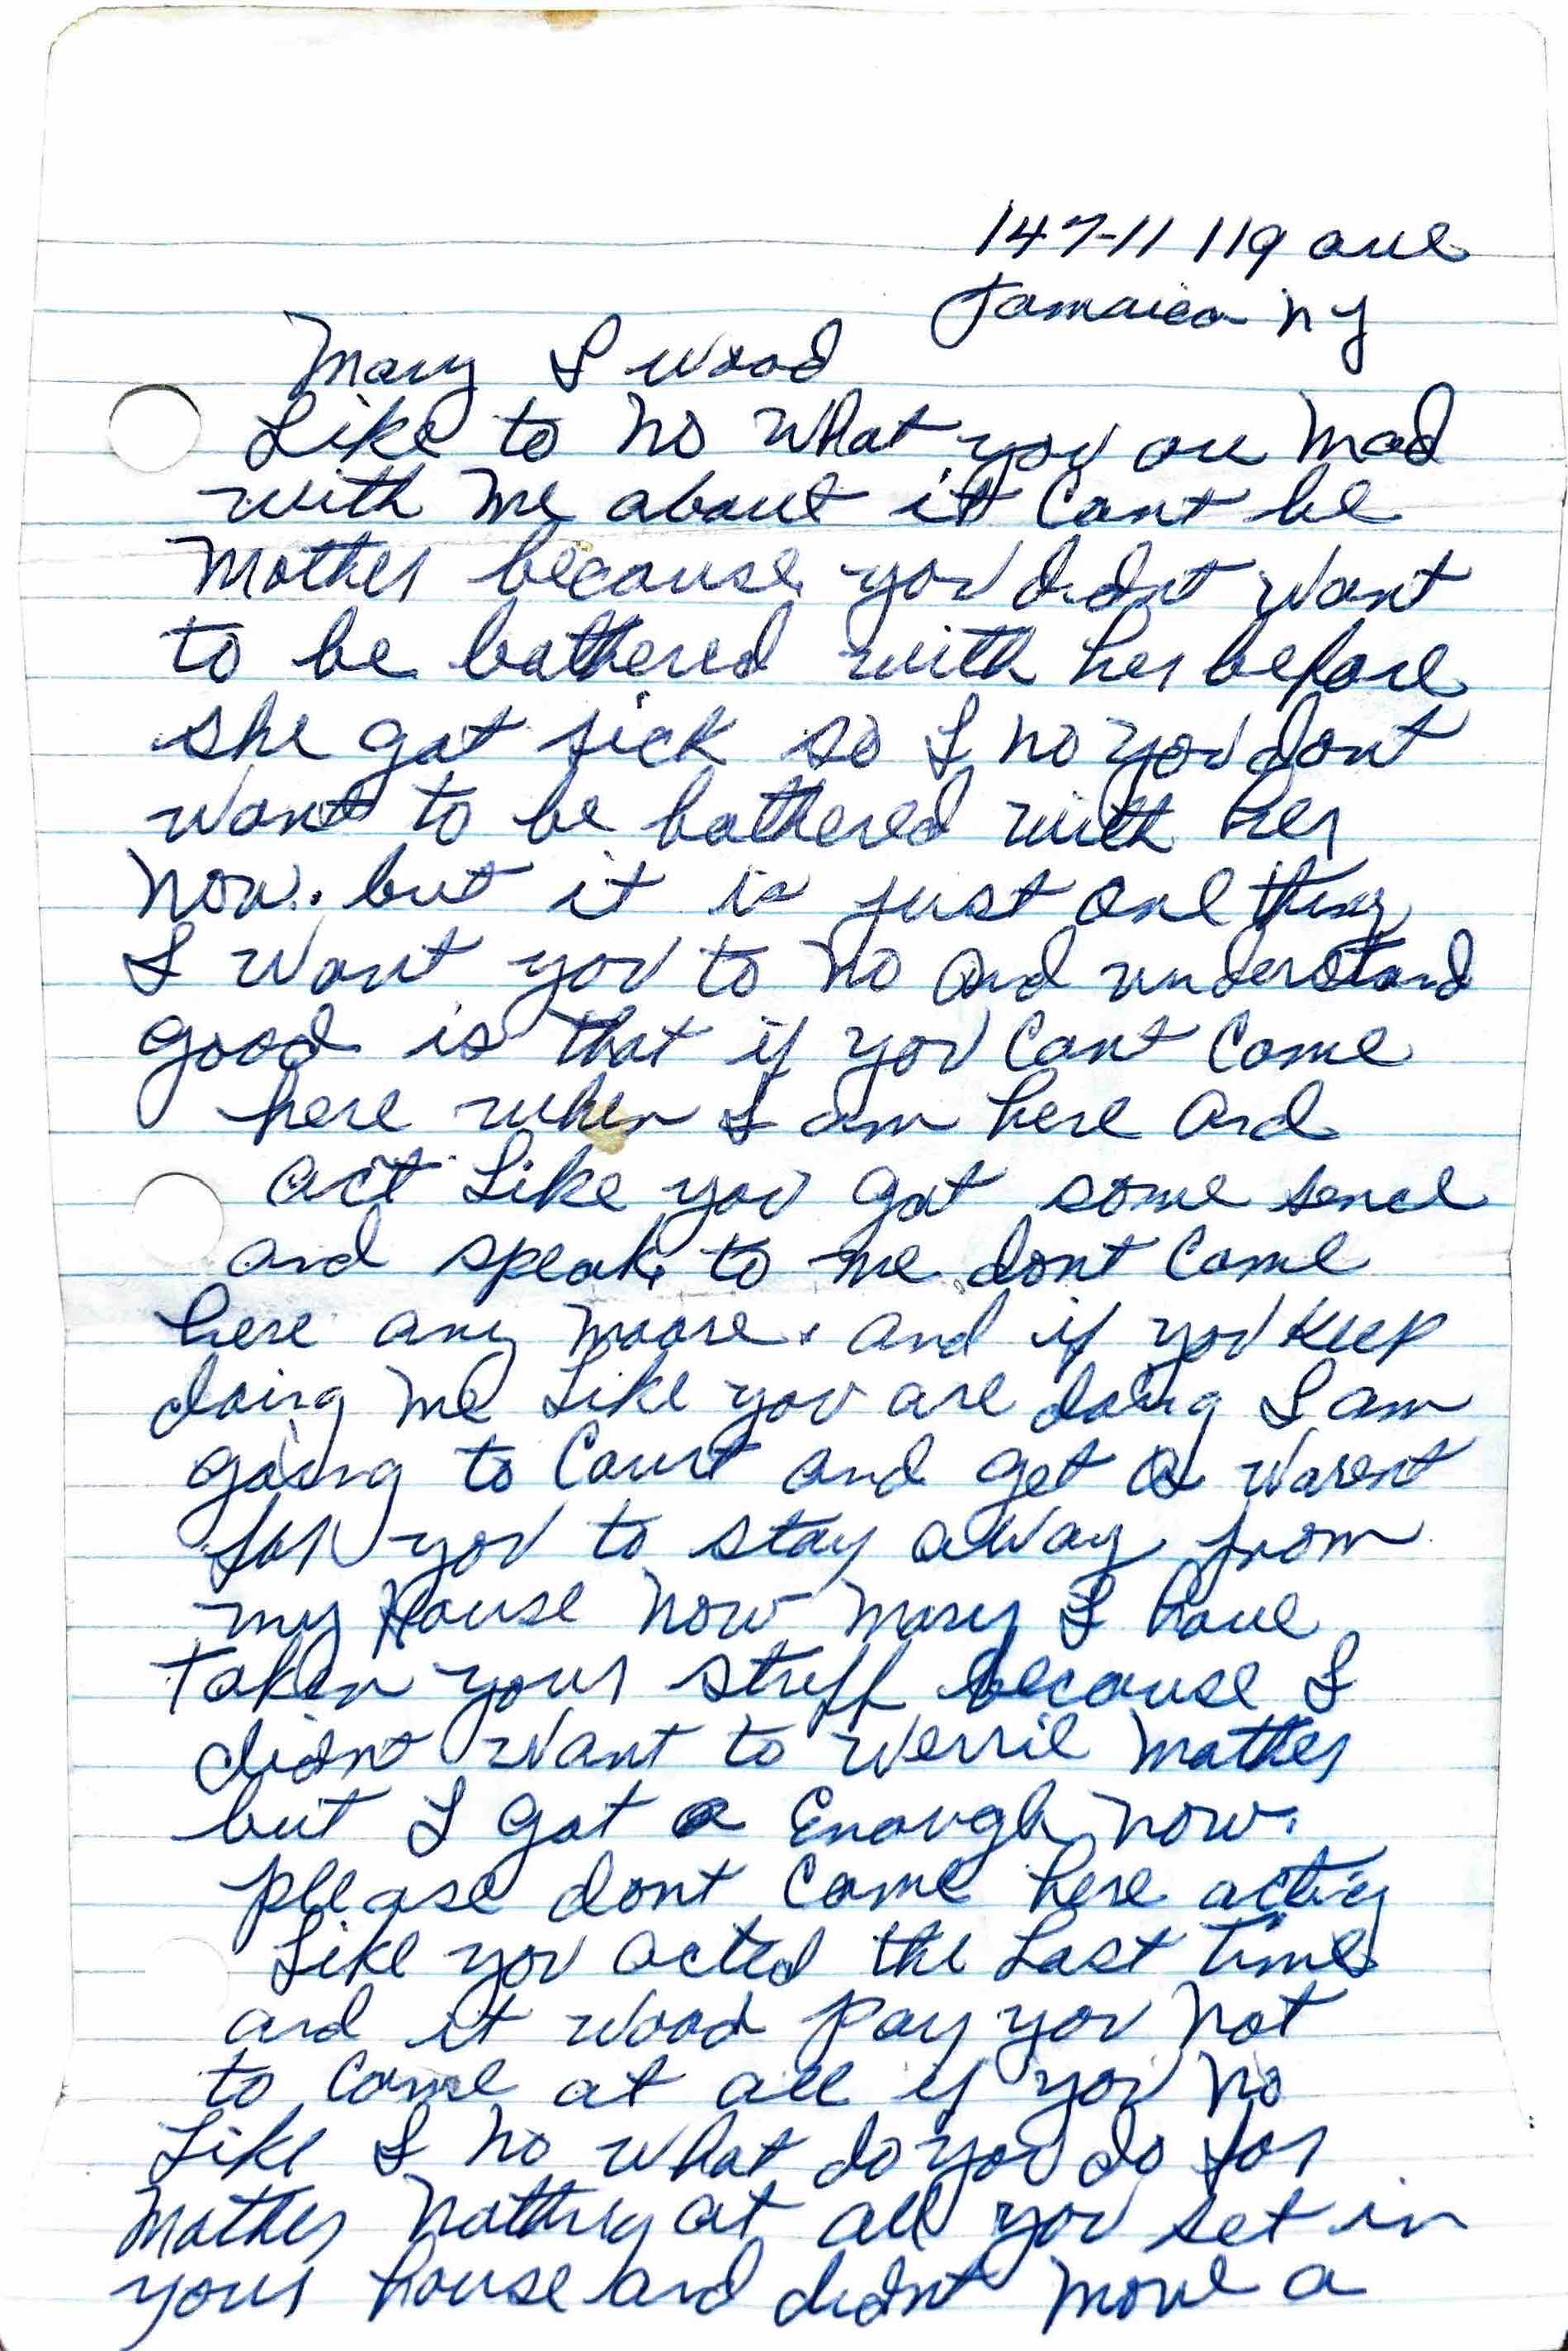 147-11 119 ave
Jamaica NY
Mary I wood
Like to no what you are mad
with me about it cant be
Mother because you didnt want
to be bothered with her before
she got sick so I no you dont
want to be bothered with her
now. but it is just one thing
I want you to no and understand
good is that if you cant come
here when I am here and
act like you got some sence
and speak to me dont come
here any moore. and if you keep
doing me like you are doing I am
going to Court and get a warent
for you to stay away from
my House now Mary I have
taken your stuff because I
didnt want to werrie Mother
but I got a Enough now.
please dont come here acting
Like you acted the Last time
and it wood pay you not
to come at all if you no
Like I no what do you do for
Mother nothing at all you set in
your house and didnt move a